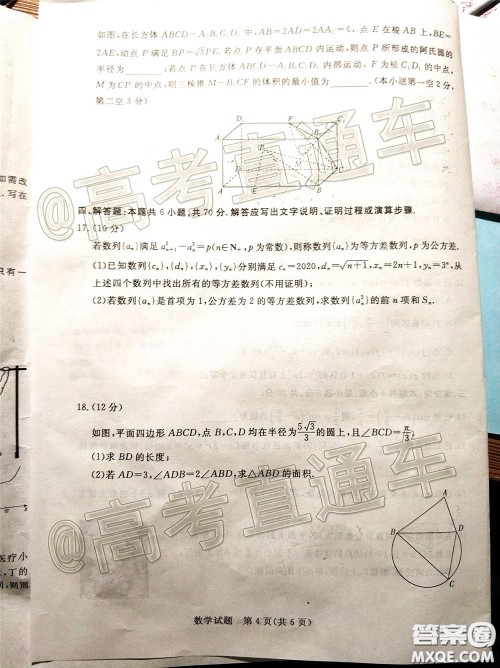 如图,在长方体 ABCD-A₁B₁C₁D₁ 中,AB=2AD=2AA₁=6,点 E 在棱 AB 上,BE=
2AE,动点 P 满足 BP=√3PE. 若点 P 在平面 ABCD 内运动,则点 P 所形成的阿氏圆的
半径为________;若点 P 在长方体 ABCD-A₁B₁C₁D₁ 内部运动,F 为棱 C₁D₁ 的中点,
M 为 CP 的中点,则三棱锥 M-B₁CF 的体积的最小值为________.(本小题第一空2分,
第二空3分)
四、解答题:本题共6小题,共70分.解答应写出文字说明、证明过程或演算步骤.
17.(10分)
若数列{aₙ}满足 a²ₙ₊₁-a²ₙ=p(n∈N₊,p 为常数),则称数列{aₙ}为等方差数列,p 为公方差.
(1)已知数列{cₙ},{dₙ},{xₙ},{yₙ}分别满足 cₙ=2020,dₙ=√(n+1),xₙ=2n+1,yₙ=3ⁿ,从
上述四个数列中找出所有的等方差数列(不用证明);
(2)若数列{aₙ}是首项为1,公方差为2的等方差数列,求数列{a²ₙ}的前 n 项和 Sₙ.
18.(12分)
如图,平面四边形 ABCD,点 B,C,D 均在半径为 5√3/3 的圆上,且∠BCD=π/3.
(1)求 BD 的长度;
(2)若 AD=3,∠ADB=2∠ABD,求△ABD 的面积.
A
B
D
C
数学试题 第4页(共6页)
如需改
写在
只有一
医疗小
丁的
则圆
@高考直通车
@高考直通车
答案圈
MXQE.COM